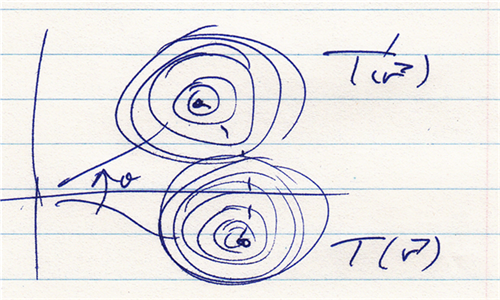 T'(r⃗)
T(r⃗)